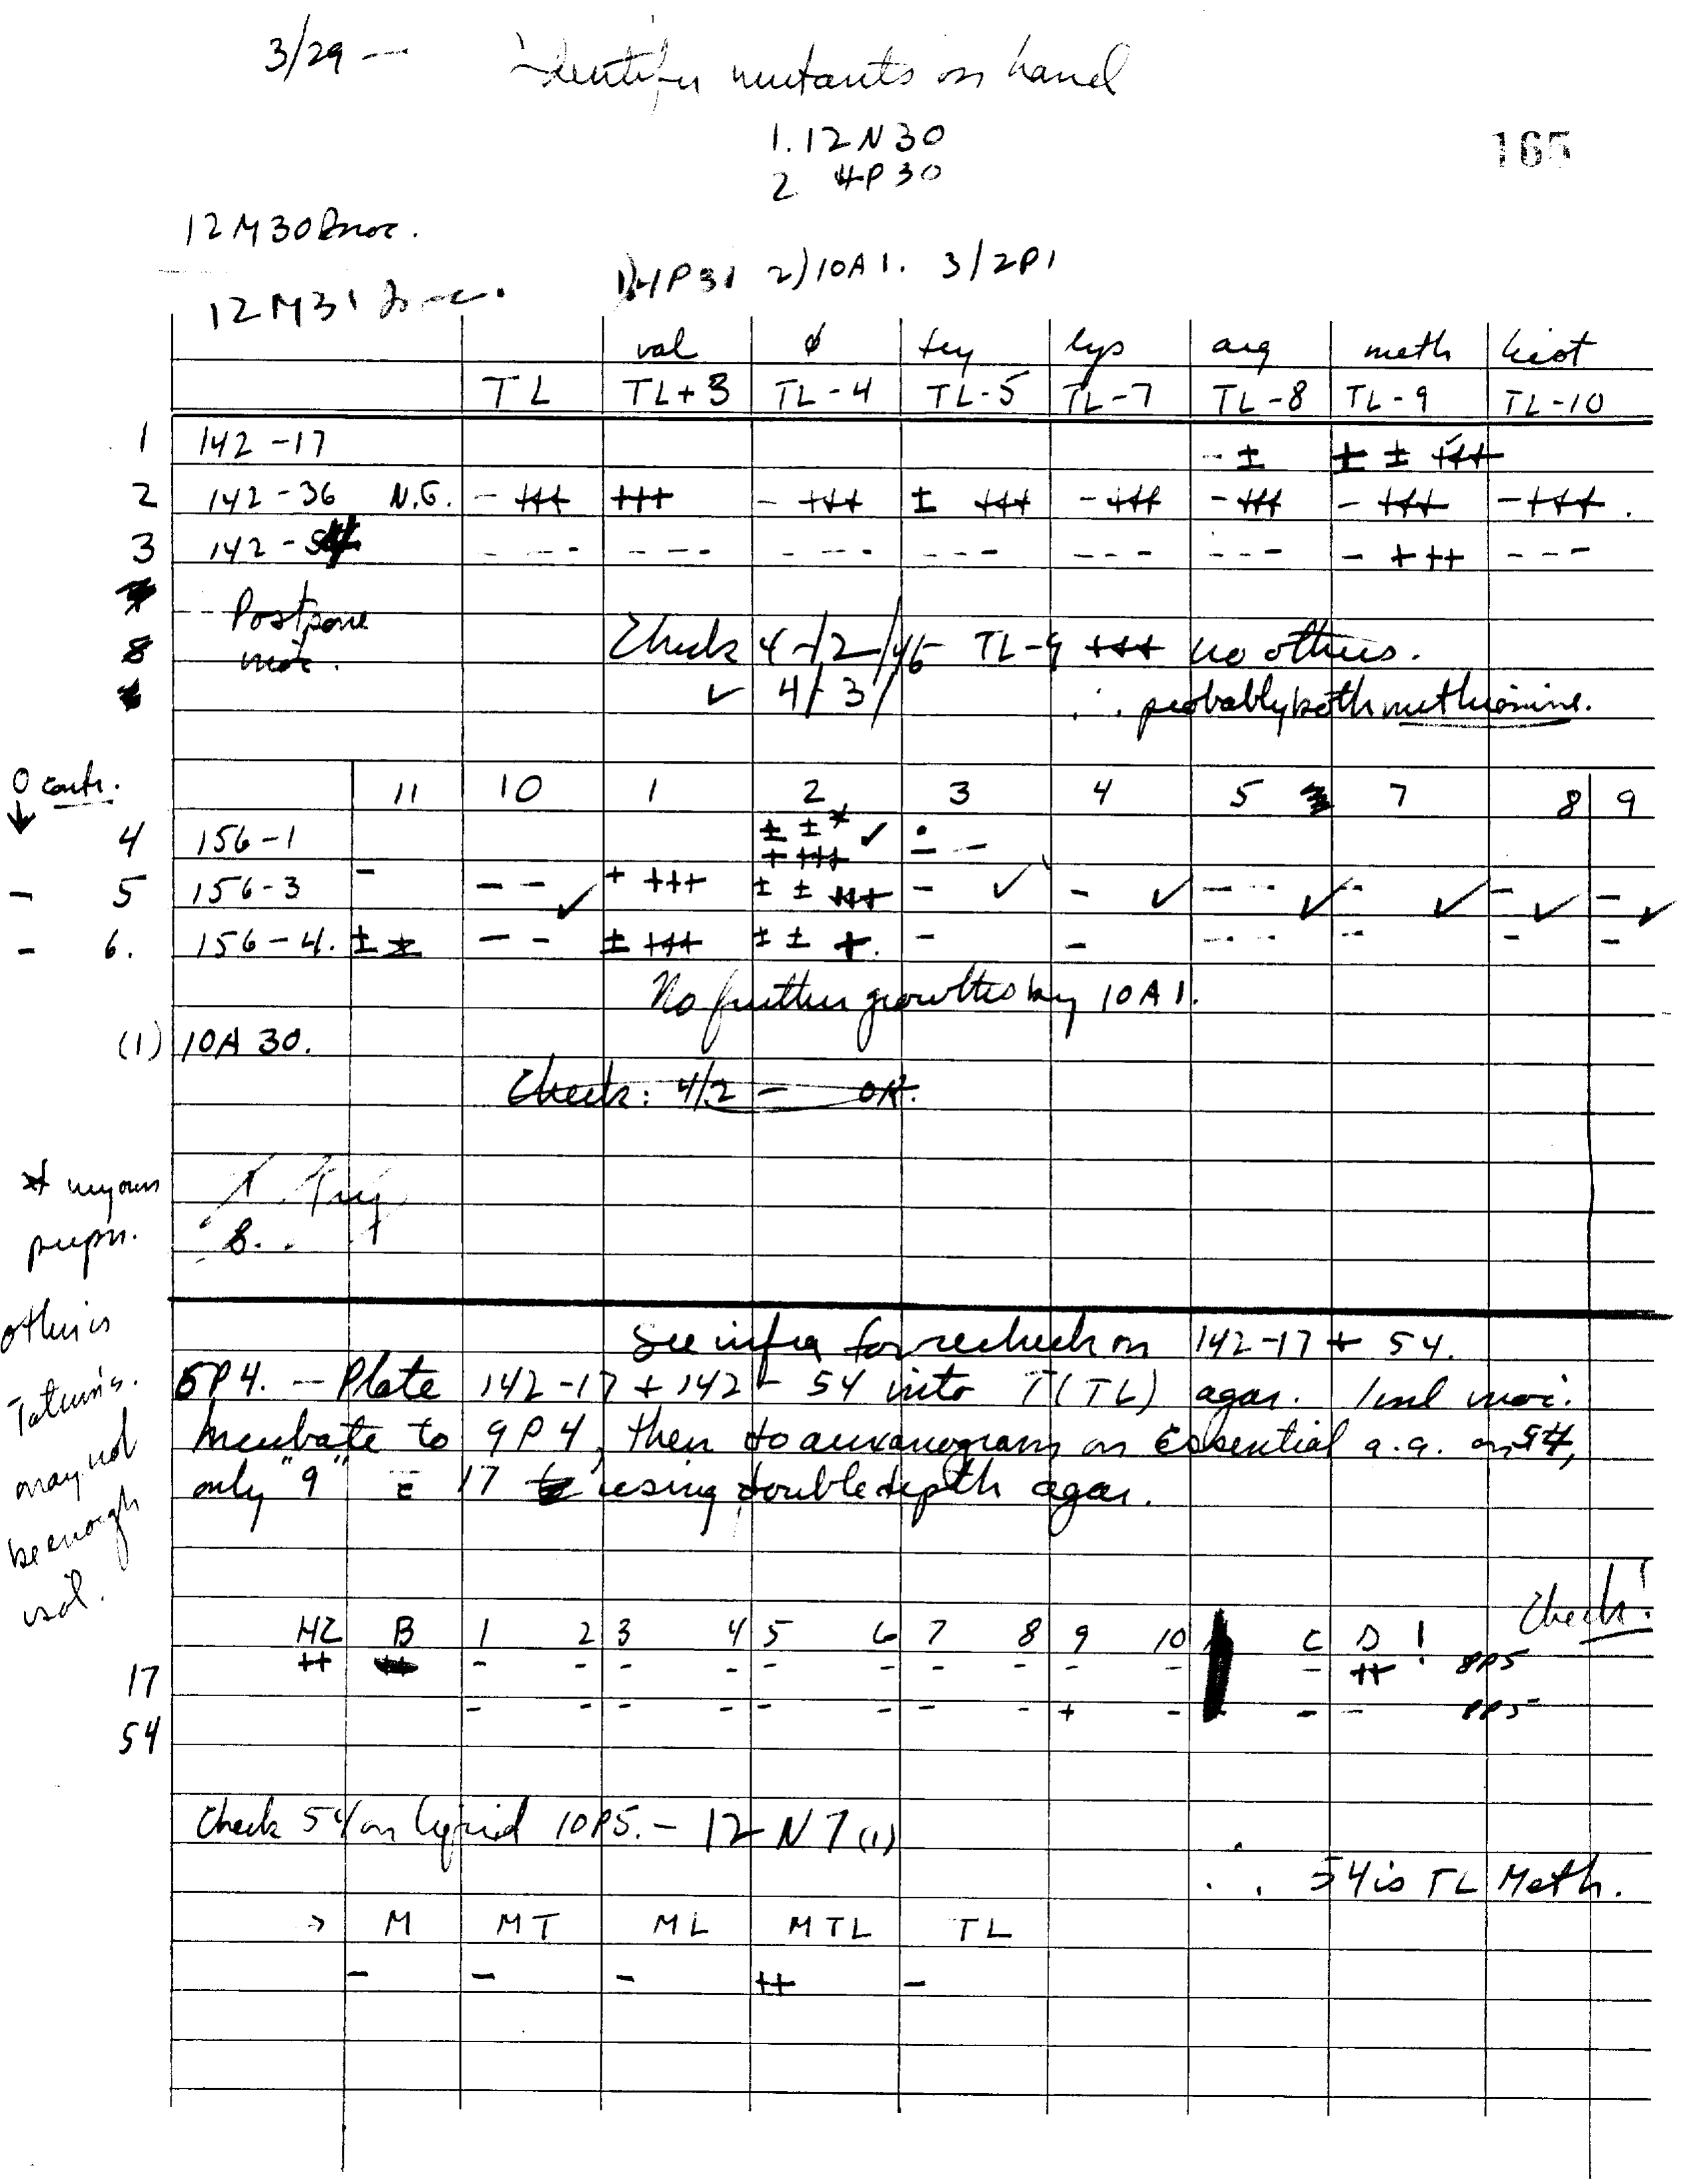 3/29 — Identify mutants on hand
1. 12 N 30
165
2 4P 30
12 M 30 Inoc.
1) 4P31 2) 10A1. 3/2P1
12 M31 Inoc.
val ϕ try lys arg meth hist
TL TL+3 TL-4 TL-5 TL-7 TL-8 TL-9 TL-10
1 142-17 - ± ± ± +++
2 142-36 N.G. - +++ +++ - +++ ± +++ - +++ - +++ - +++ - +++.
3 142-54 --- --- --- --- --- --- - +++ ---
Postpone
8 inoc.
Check 4/2/46 TL-9 +++ no others.
✓ 4/3/ ∴ probably both methionine.
0 contr.
↓
11 10 1 2 3 4 5 7 8 9
4 156-1 ± ±* ✓ -
+ +++ - -
- 5 156-3 - - - ✓ + +++ ± ± +++ - ✓ - ✓ - -- ✓ -- ✓ - ✓ - ✓
- 6. 156-4. ± ± - - ± +++ ± ± +. - - -- -- -- - -
No further growths by 10A1.
(1) 10A 30.
Check: 4/2 — OK.
* my own
prepn.
Try
8.
others
Tatum's.
may not
be enough
vol.
See infra for recheck on 142-17 + 54.
5P4. — Plate 142-17 + 142-54 into T(TL) agar. 1 ml inoc.
Incubate to 9P4, then do auxanograms on Essential a.a. on 54,
only "9" = 17 using double depth agar.
Check!
HZ B 1 2 3 4 5 6 7 8 9 10 C D !
17 ++ ++ - - - - - - - - - - - ++ 8P5
54 - - - - - - - - + - - - 8P5
Check 54 on liquid 10P5. — 12 N 7 (1)
∴ 54 is TL Meth.
→ M MT ML MTL TL
- - - ++ -